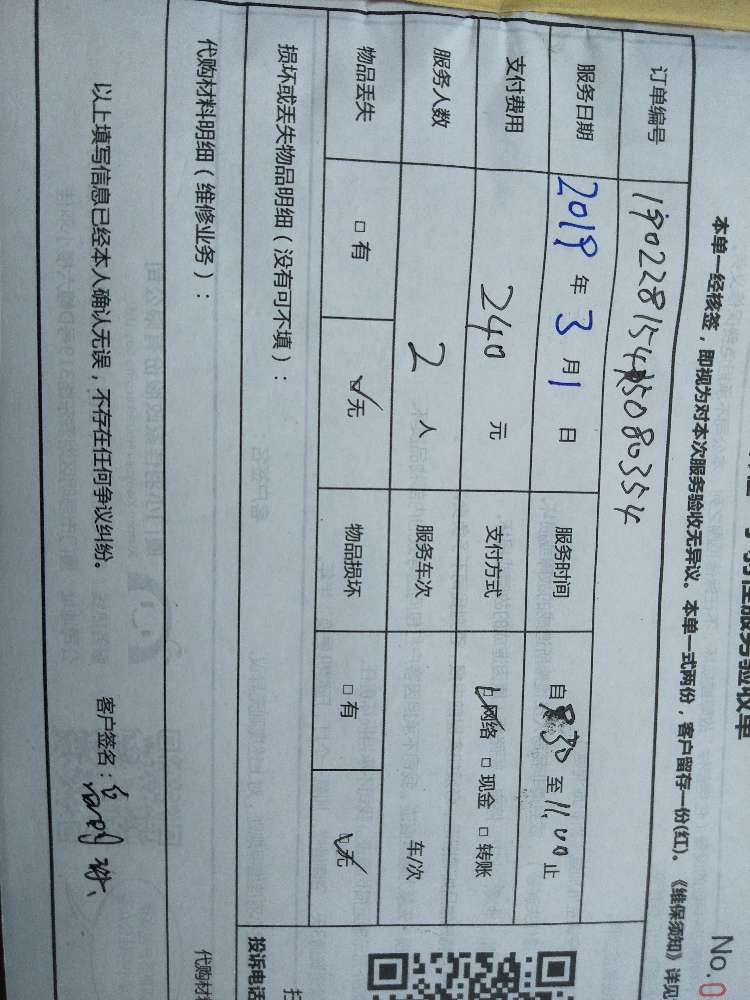 服务验收单
No.0
本单一经核签，即视为对本次服务验收无异议。本单一式两份，客户留存一份(红)。《维保须知》详见
订单编号 19022815475080354
服务日期 2019 年 3 月 1 日 服务时间 自 8:30 至 11:00 止
支付费用 240 元 支付方式 ☑网络 □现金 □转账
服务人数 2 人 服务车次 车/次
物品丢失 □有 ☑无 物品损坏 □有 ☑无
损坏或丢失物品明细（没有可不填）：
投诉电话
代购材料明细（维修业务）：
代购材
以上填写信息已经本人确认无误，不存在任何争议纠纷。 客户签名：